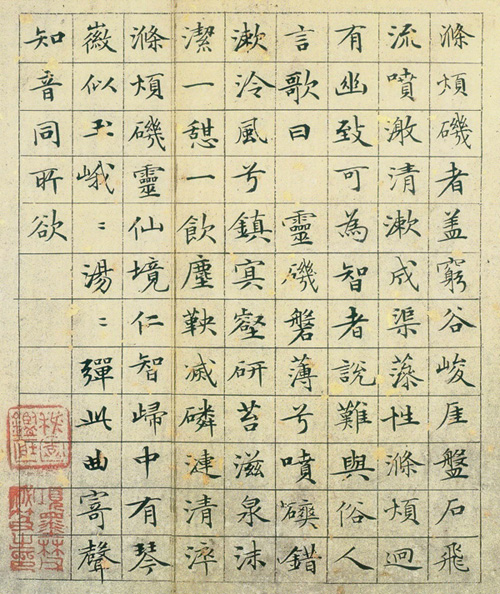 滌煩磯者盖窮谷峻厓盤石飛
流噴激清漱成渠藻性滌煩迴
有幽致可為智者說難與俗人
言歌曰 靈磯磐薄兮噴錯
漱泠風兮鎮㝠壑研苔滋泉沫
潔一憇一飲塵鞅滅磷漣清淬
滌煩磯靈仙境仁智歸中有琴
徽似玉峨〻湯〻彈此曲寄聲
知音同所欲